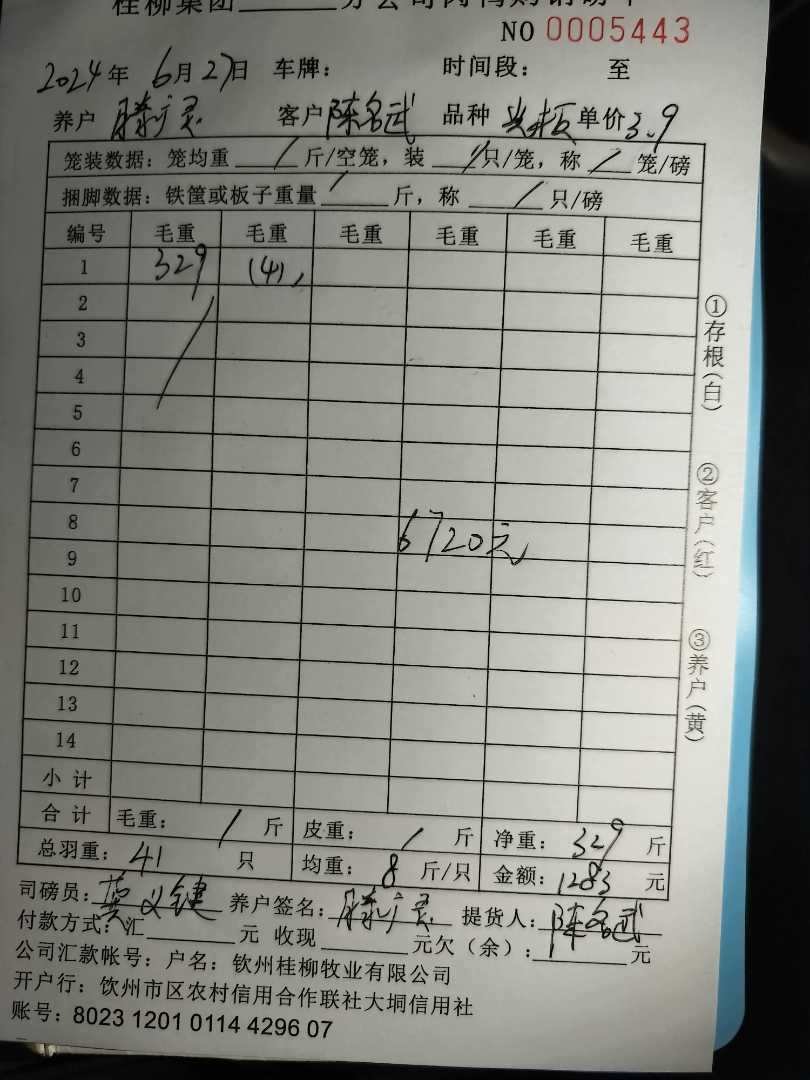 桂柳集团 分公司肉鸭购销磅单
NO 0005443
2024年 6月27日 车牌: 时间段: 至
养户 滕广灵 客户 陈名武 品种 单价 3.9
笼装数据: 笼均重 / 斤/空笼, 装 / 只/笼, 称 / 笼/磅
捆脚数据: 铁筐或板子重量 / 斤, 称 / 只/磅
编号 毛重 毛重 毛重 毛重 毛重 毛重
1 329 (41)
2
3
4
5
6
7
8 6720元
9
10
11
12
13
14
小计
合计 毛重: / 斤 皮重: / 斤 净重: 329 斤
总羽重: 41 只 均重: 8 斤/只 金额: 1283 元
司磅员: 莫义键 养户签名: 滕广灵 提货人: 陈名武
付款方式: 汇 元 收现 元欠(余): / 元
公司汇款帐号: 户名: 钦州桂柳牧业有限公司
开户行: 钦州市区农村信用合作联社大垌信用社
账号: 8023 1201 0114 4296 07
①存根(白)
②客户(红)
③养户(黄)